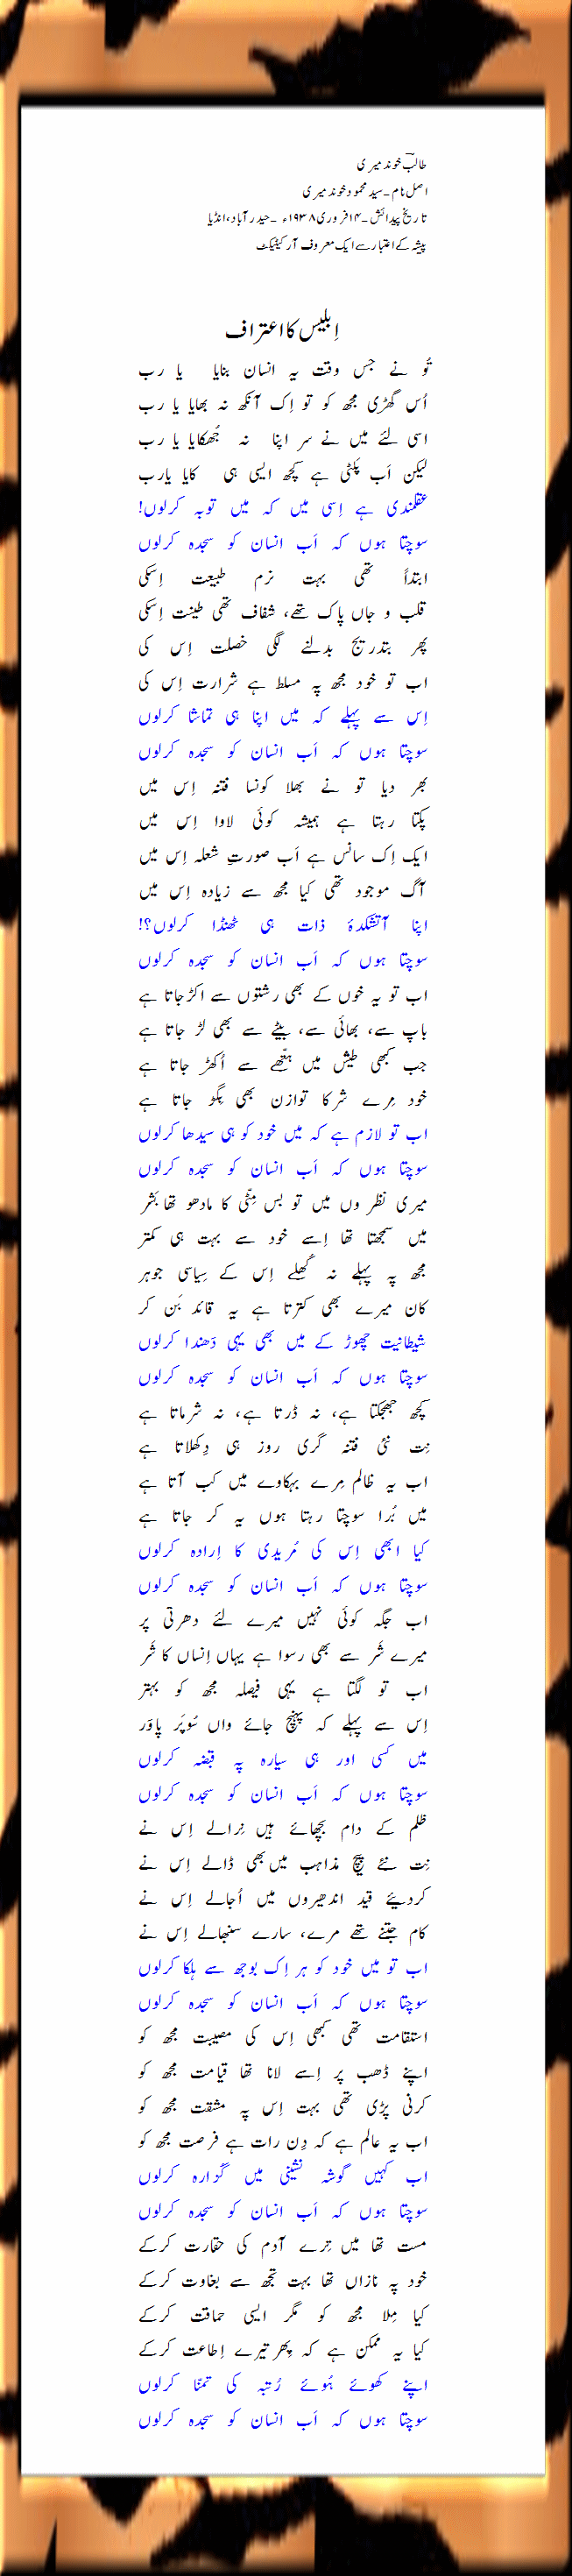 طالبؔ خوند میری
اصل نام ۔ سید محمود خوند میری
تاریخ پیدائش ۔ ۱۴ فروری ۱۹۳۸ء ۔ حیدرآباد، انڈیا
پیشہ کے اعتبار سے ایک معروف آرکیٹیکٹ
اِبلیس کا اعتراف
تُو نے جس وقت یہ انسان بنایا یا رب
اُس گھڑی مجھ کو تو اِک آنکھ نہ بھایا یا رب
اسی لئے میں نے سر اپنا نہ جُھکایا یا رب
لیکن اَب پلٹی ہے کچھ ایسی ہی کایا یارب
عقلمندی ہے اِسی میں کہ میں توبہ کرلوں!
سوچتا ہوں کہ اَب انسان کو سجدہ کرلوں
ابتداً تھی بہت نرم طبیعت اِسکی
قلب و جاں پاک تھے، شفاف تھی طینت اِسکی
پھر بتدریج بدلنے لگی خصلت اِس کی
اب تو خود مجھ پہ مسلط ہے شرارت اِس کی
اِس سے پہلے کہ میں اپنا ہی تماشا کرلوں
سوچتا ہوں کہ اَب انسان کو سجدہ کرلوں
بھر دیا تو نے بھلا کونسا فتنہ اِس میں
پکتا رہتا ہے ہمیشہ کوئی لاوا اِس میں
ایک اِک سانس ہے اَب صورتِ شعلہ اِس میں
آگ موجود تھی کیا مجھ سے زیادہ اِس میں
اپنا آتشکدۂ ذات ہی ٹھنڈا کرلوں؟!
سوچتا ہوں کہ اَب انسان کو سجدہ کرلوں
اب تو یہ خوں کے بھی رشتوں سے اکڑ جاتا ہے
باپ سے، بھائی سے، بیٹے سے بھی لڑ جاتا ہے
جب کبھی طیش میں ہتّھے سے اُکھڑ جاتا ہے
خود مِرے شر کا توازن بھی بگڑ جاتا ہے
اب تو لازم ہے کہ میں خود کو ہی سیدھا کرلوں
سوچتا ہوں کہ اَب انسان کو سجدہ کرلوں
میری نظر وں میں تو بس مِٹّی کا مادھو تھا بَشر
میں سمجھتا تھا اِسے خود سے بہت ہی کمتر
مجھ پہ پہلے نہ کُھلے اِس کے سِیاسی جوہر
کان میرے بھی کترتا ہے یہ قائد بَن کر
شیطانیت چھوڑ کے میں بھی یہی دَھندا کرلوں
سوچتا ہوں کہ اَب انسان کو سجدہ کرلوں
کچھ جھجکتا ہے، نہ ڈرتا ہے، نہ شرماتا ہے
نِت نئی فتنہ گری روز ہی دِکھلاتا ہے
اب یہ ظالم مِرے بہکاوے میں کب آتا ہے
میں بُرا سوچتا رہتا ہوں یہ کر جاتا ہے
کیا ابھی اِس کی مُریدی کا اِرادہ کرلوں
سوچتا ہوں کہ اَب انسان کو سجدہ کرلوں
اب جگہ کوئی نہیں میرے لئے دھرتی پر
میرے شَر سے بھی رسوا ہے یہاں اِنساں کا شَر
اب تو لگتا ہے یہی فیصلہ مجھ کو بہتر
اِس سے پہلے کہ پہنچ جائے واں سُوپر پاوَر
میں کسی اور ہی سیارہ پہ قبضہ کرلوں
سوچتا ہوں کہ اَب انسان کو سجدہ کرلوں
ظلم کے دام بچھائے ہیں نِرالے اِس نے
نِت نئے پیچ مذاہب میں بھی ڈالے اِس نے
کردیئے قید اندھیروں میں اُجالے اِس نے
کام جتنے تھے مرے، سارے سنبھالے اِس نے
اب تو میں خود کو ہر اِک بوجھ سے ہلکا کرلوں
سوچتا ہوں کہ اَب انسان کو سجدہ کرلوں
استقامت تھی کبھی اِس کی مصیبت مجھ کو
اپنے ڈھب پر اِسے لانا تھا قیامت مجھ کو
کرنی پڑی تھی بہت اِس پہ مشقت مجھ کو
اب یہ عالم ہے کہ دِن رات ہے فرصت مجھ کو
اب کہیں گوشہ نشینی میں گُزارہ کرلوں
سوچتا ہوں کہ اَب انسان کو سجدہ کرلوں
مست تھا میں تِرے آدم کی حقارت کرکے
خود پہ نازاں تھا بہت تجھ سے بغاوت کرکے
کیا مِلا مجھ کو مگر ایسی حماقت کرکے
کیا یہ ممکن ہے کہ پھر تیرے اِطاعت کرکے
اپنے کھوئے ہُوئے رُتبہ کی تمنّا کرلوں
سوچتا ہوں کہ اَب انسان کو سجدہ کرلوں